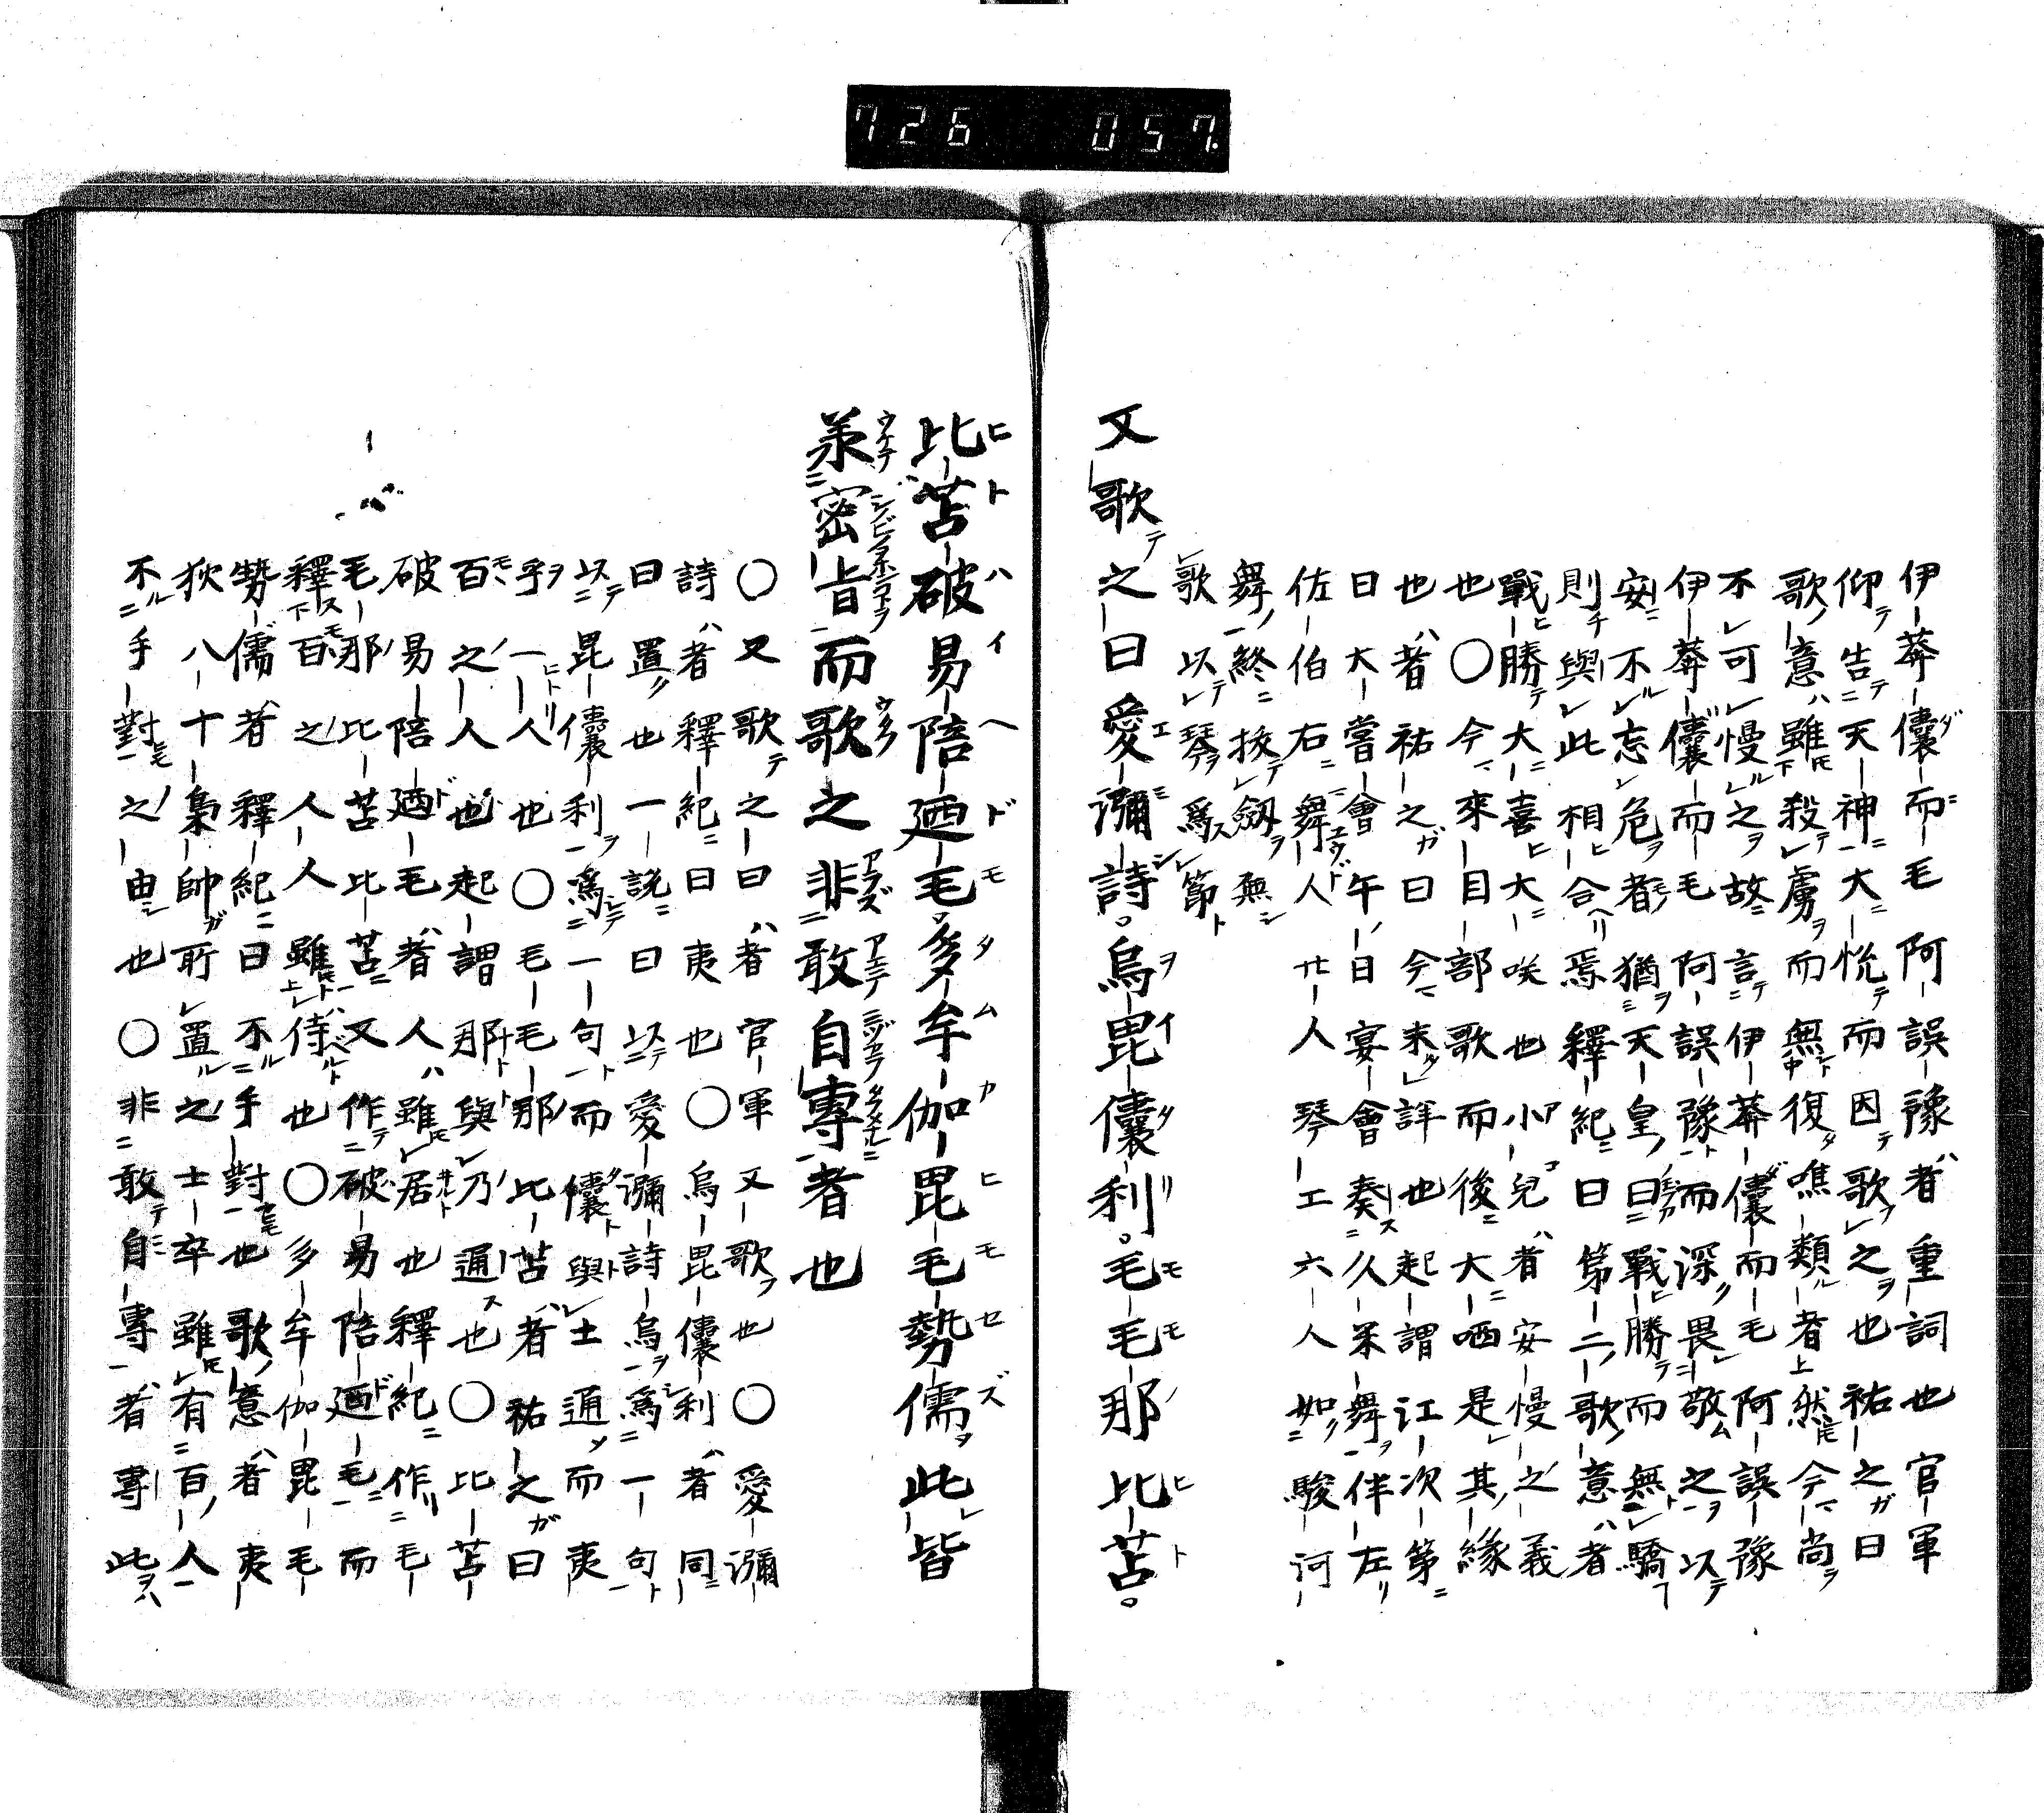 726 057.
伊莾儾而毛阿誤豫者重詞也官軍
仰告天神大悦而因歌之也祐之曰
歌意雖殺虜而無復噍類者然今尚
不可慢之故言伊莾儾而毛阿誤豫
伊莾儾而毛阿誤豫而深畏敬之以
安不忘危者猶天皇曰戰勝而無驕
則與此相合焉釋紀曰第二歌意者
戰勝大喜大咲也小兒者安慢之義
也〇今來目部歌而後大哂是其緣
也者祐之曰今未詳也起謂江次第
日大嘗會午日宴會奏久米舞伴左
佐伯右舞人廿人琴工六人如駿河
舞終拔劔無
歌以琴爲節
又歌之曰愛瀰詩。烏毘儾利。毛毛那比苫。
比苫破易陪廼毛。多牟伽毘毛勢儒此皆
羕密旨而歌之非敢自專者也
〇又歌之曰者官軍又歌也〇愛瀰
詩者釋紀曰夷也〇烏毘儾利者同
曰置也一說曰以愛瀰詩烏爲一句
以毘儾利爲一句而儾與士通而夷
乎一人也〇毛毛那比苫者祐之曰
百之人也起謂那與乃通也〇比苫
破易陪廼毛者人雖居也釋紀作毛
毛那比苫比苫又作破易陪廼毛而
釋百之人人雖侍也〇多牟伽毘毛
勢儒者釋紀曰不手對也歌意者夷
狄八十梟帥所置之士卒雖有百人
不手對之由也〇非敢自專者專此